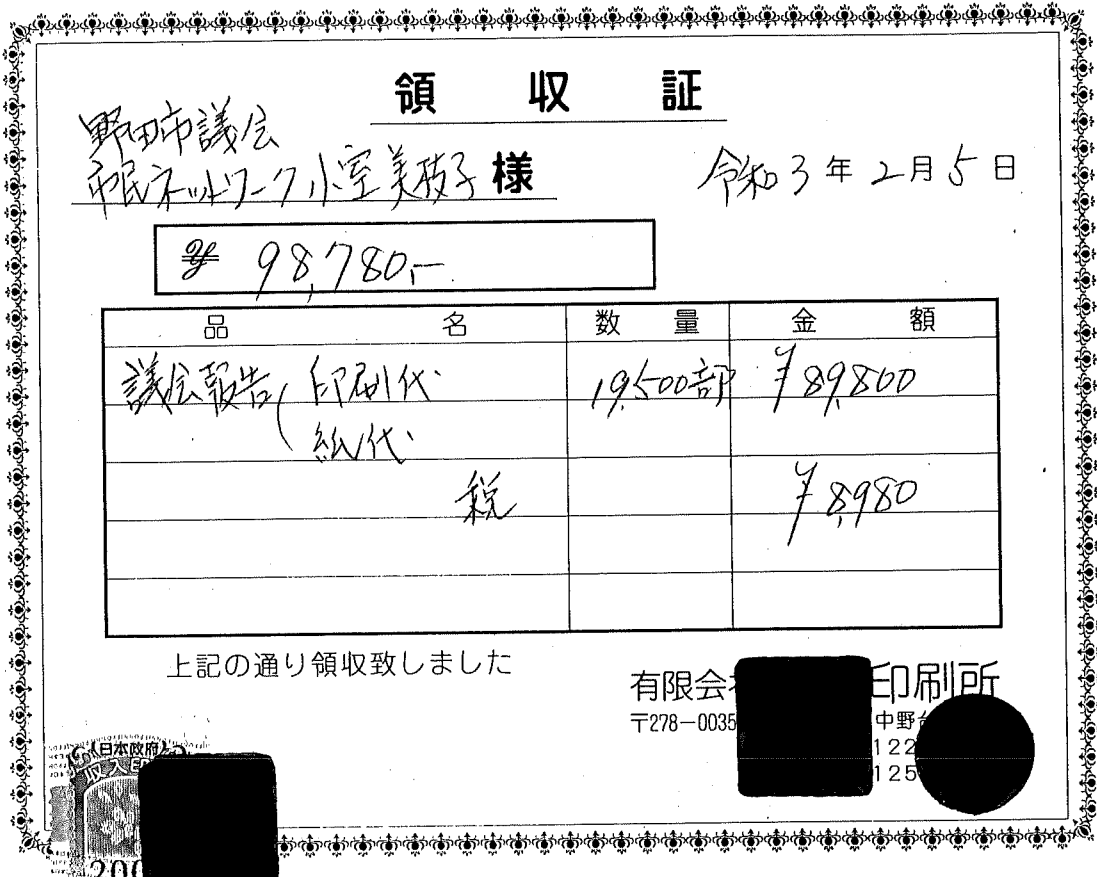 領収証
野田市議会
市民ネットワーク小室美枝子様
令和3年2月5日
¥ 98,780,-
品名 数量 金額
議会報告(印刷代 19,500部 ¥89,800
紙代
税 ¥8,980
上記の通り領収致しました
有限会 印刷所
〒278-0035 中野台
122
125
日本政府
収入印
200